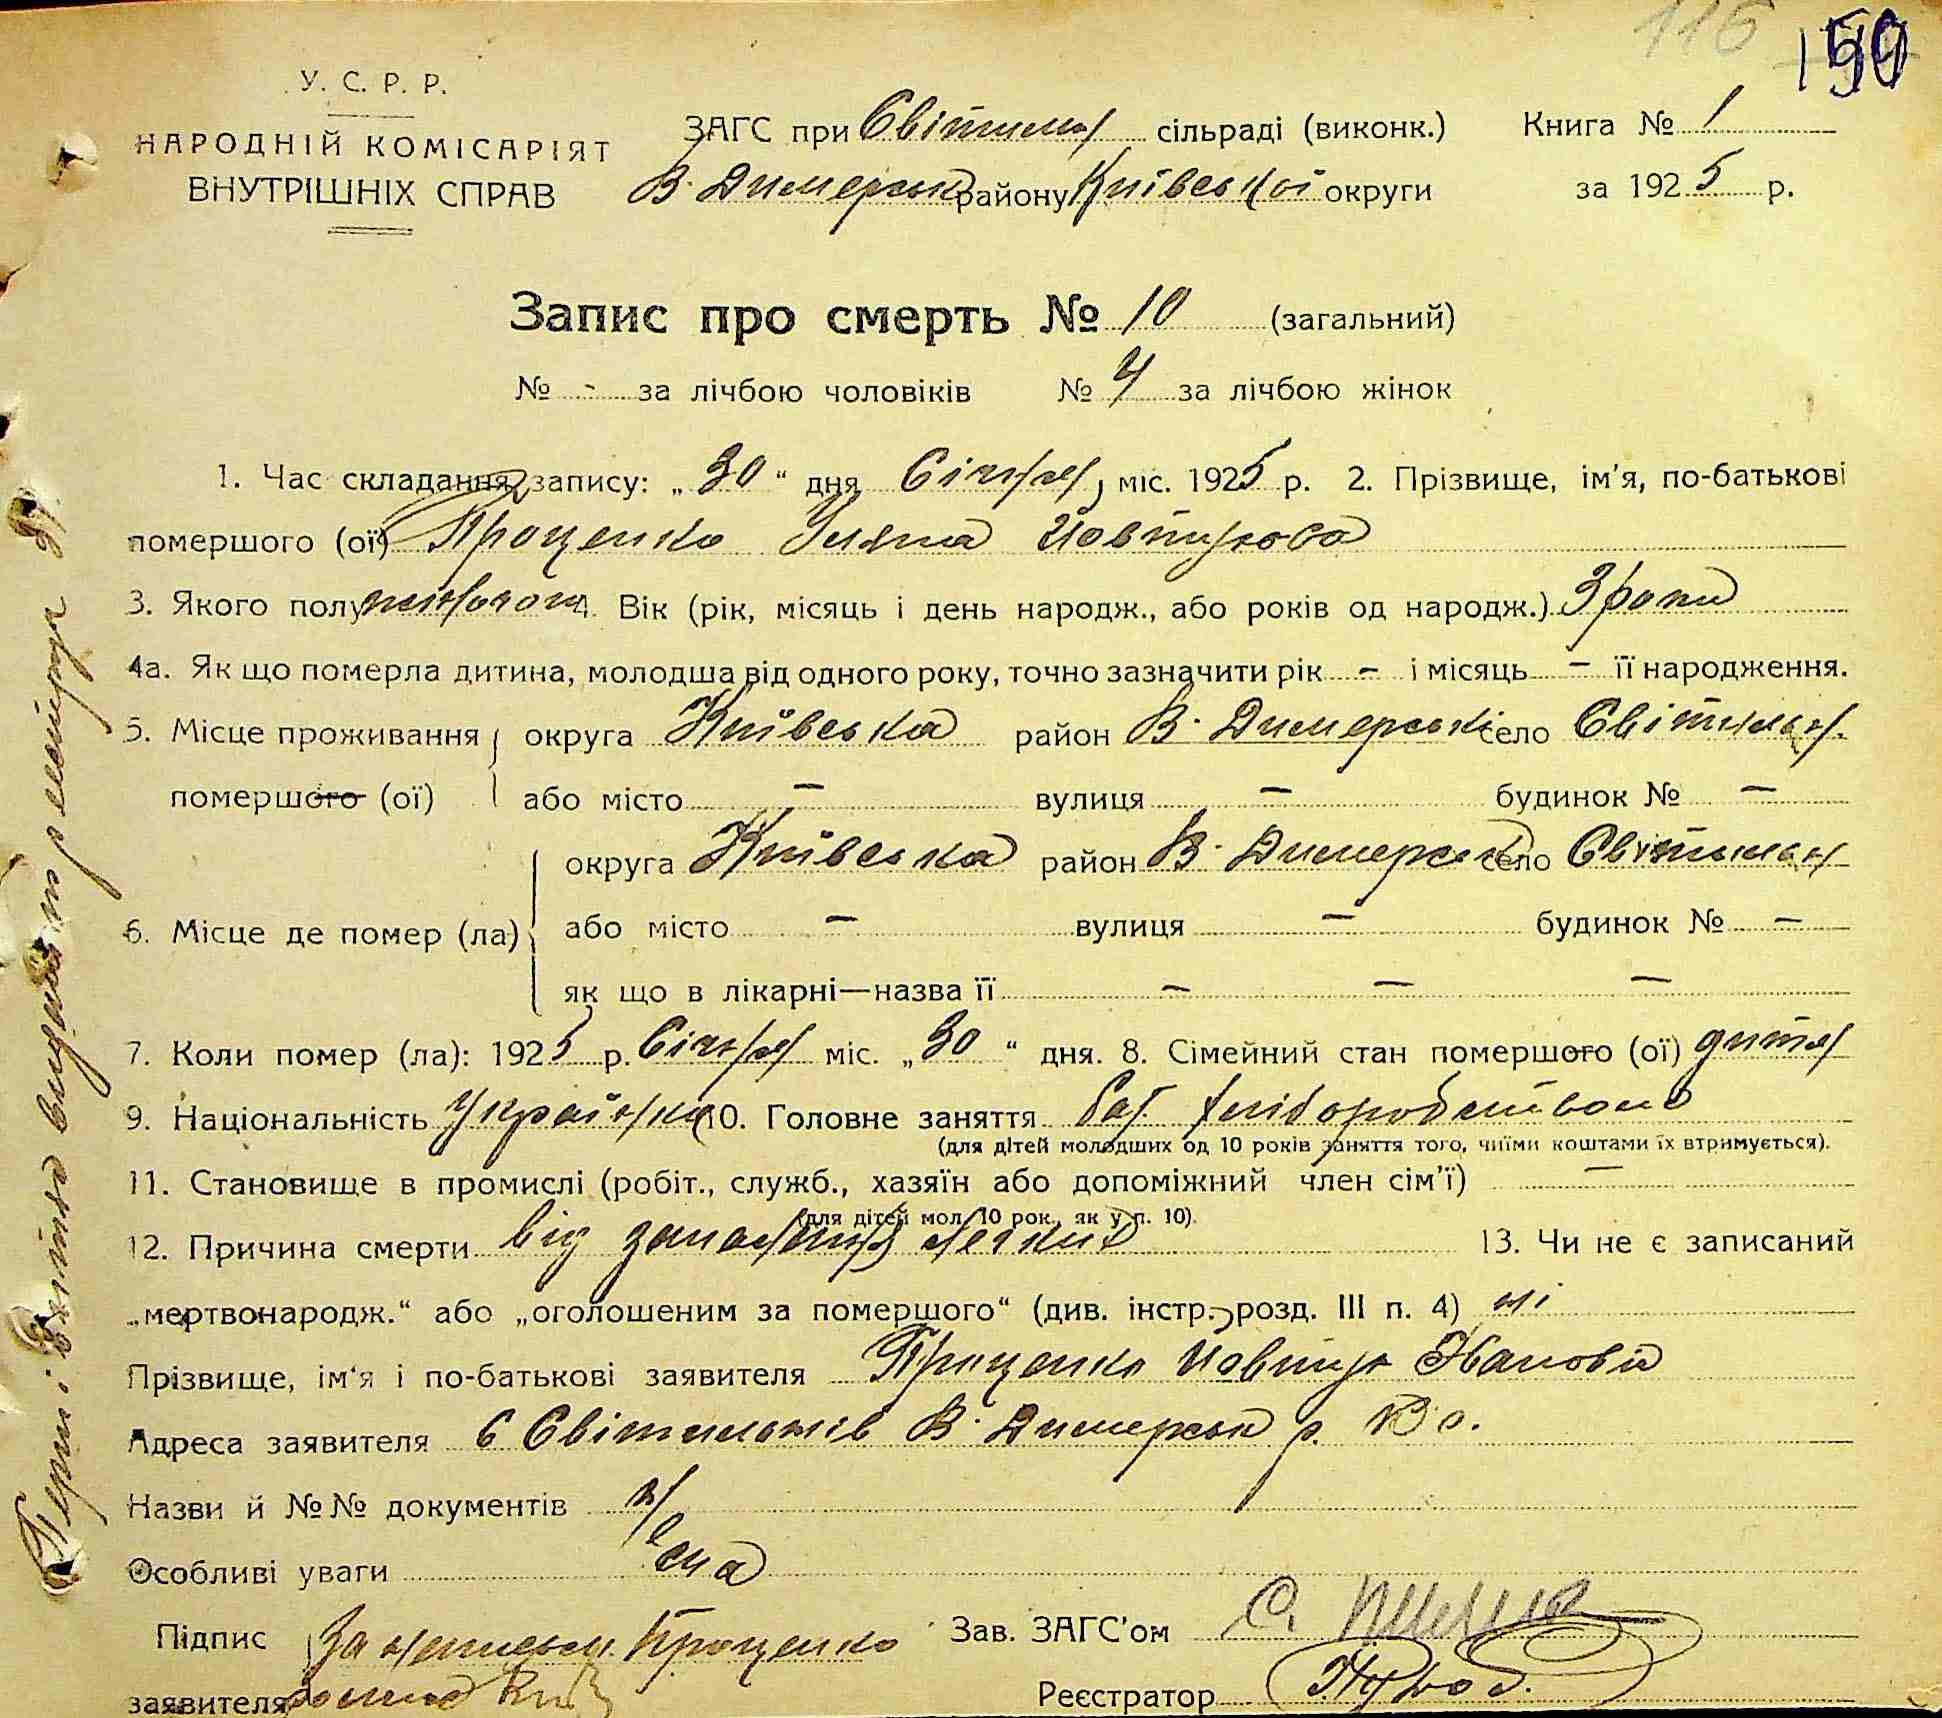 116 150
У. С. Р. Р.
НАРОДНІЙ КОМІСАРІЯТ
ВНУТРІШНІХ СПРАВ
ЗАГС при Світильн сільраді (виконк.) Книга № 1
В. Димерськ району Київської округи за 1925 р.
Запис про смерть № 10 (загальний)
№ - за лічбою чоловіків № 4 за лічбою жінок
1. Час складання запису: „30“ дня Січня міс. 1925 р. 2. Прізвище, ім'я, по-батькові
помершого (ої) Проценко Уляна Йовтухова
3. Якого полу жіночого 4. Вік (рік, місяць і день народж., або років од народж.) 3 роки
4а. Як що померла дитина, молодша від одного року, точно зазначити рік - і місяць - її народження.
5. Місце проживання округа Київська район В. Димерськ село Світильн.
помершого (ої) або місто — вулиця — будинок № —
округа Київська район В. Димерськ село Світильн
6. Місце де помер (ла) або місто — вулиця — будинок № —
як що в лікарні—назва її — — —
7. Коли помер (ла): 1925 р. Січня міс. „30“ дня. 8. Сімейний стан помершого (ої) дитя
9. Національність Українка 10. Головне заняття хліборобством
(для дітей молодших од 10 років заняття того, чиїми коштами їх втримується).
11. Становище в промислі (робіт., служб., хазяїн або допоміжний член сім'ї) —
(для дітей мол. 10 рок., як у п. 10).
12. Причина смерти від запалення легких 13. Чи не є записаний
„мертвонародж.“ або „оголошеним за помершого“ (див. інстр. розд. III п. 4) ні
Прізвище, ім'я і по-батькові заявителя Проценко Йовтух
Адреса заявителя с Світильнів В. Димерськ р. К. о.
Назви й №№ документів
Особливі уваги нема
Підпис За неписьм. Проценко Зав. ЗАГС'ом С.
заявителя Реєстратор